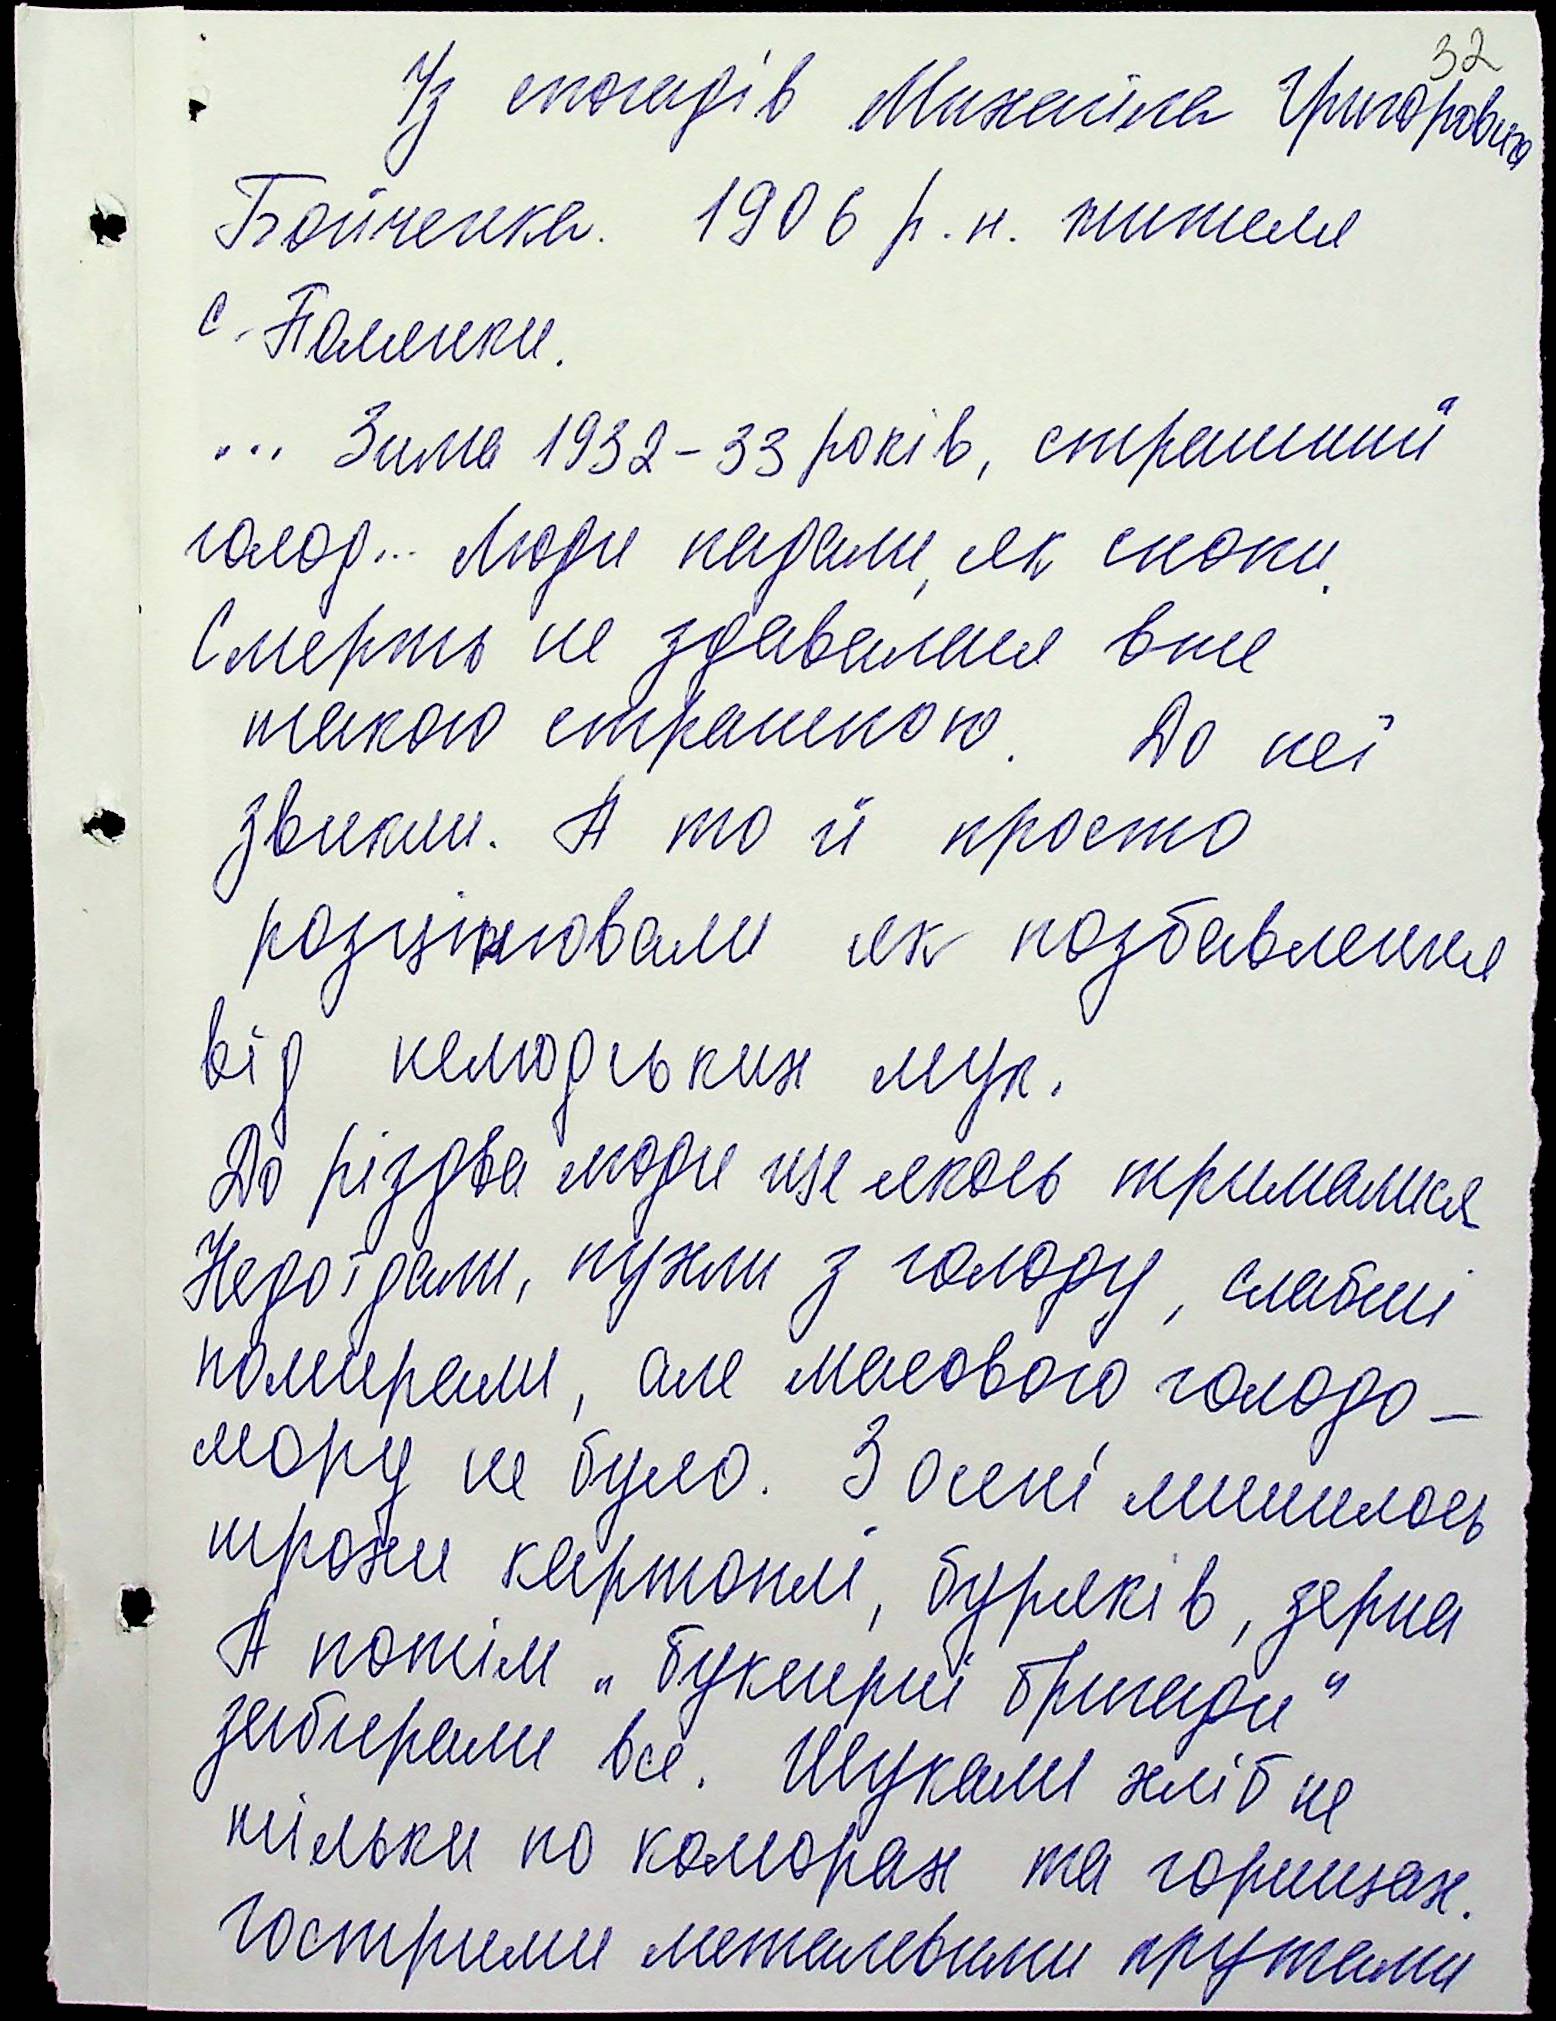 32
Із спогадів Михайла Григоровича
Бойченка. 1906 р. н. жителя
с. Паланки.
... Зима 1932-33 років, страшний
голод... Люди падали, як снопи.
Смерть не здавалася вже
такою страшною. До неї
звикли. А то й просто
розцінювали як позбавлення
від нелюдських мук.
До різдва люди ще якось трималися
Недоїдали, пухли з голоду, слабші
помирали, але масового голодо-
мору не було. З осені лишилось
трохи картоплі, буряків, зерна
А потім „букеирні бригади"
забирали все. Шукали хліб не
тільки по коморах та горищах.
Гострими металевими прутами